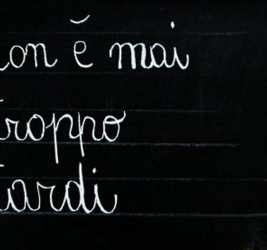 on è mai
roppo
tardi